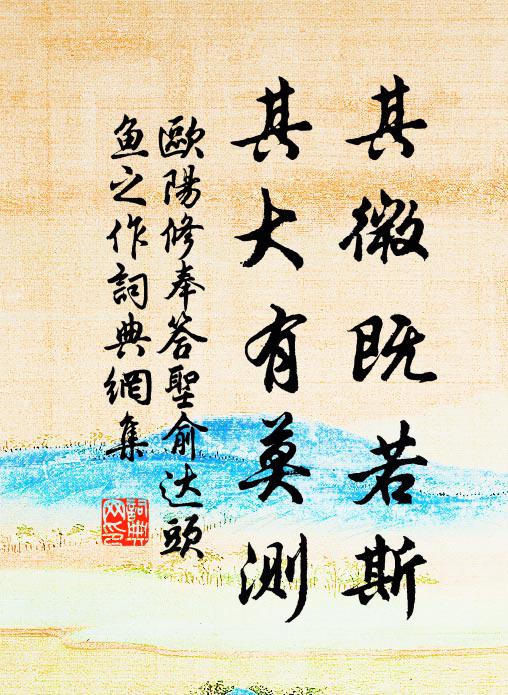 其微既若斯
其大有莫测
歐陽修奉答聖俞达頭
鱼之作詞典網集
詞典